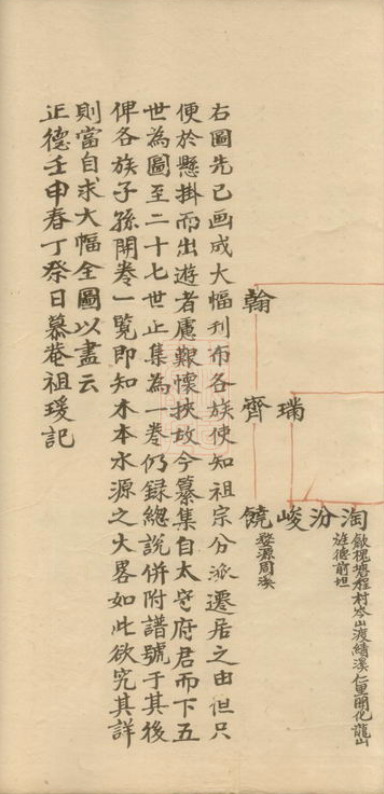 淘
歙槐塘程村岑山渡績溪仁里開化龍山
旌德前坦
汾
瑞
峻
翰
齊
饒
婺源周溪
右圖先已画成大幅刋布各族使知祖宗分派遷居之由但只
便於懸掛而出遊者慮艱懷挾故今纂集自太守府君而下五
世為圖至二十七世止集為一卷仍録總說併附譜號于其後
俾各族子孫開卷一覧即知木本水源之大畧如此欲究其詳
則當自求大幅全圖以盡云
正德壬申春丁祭日慕菴祖瑗記